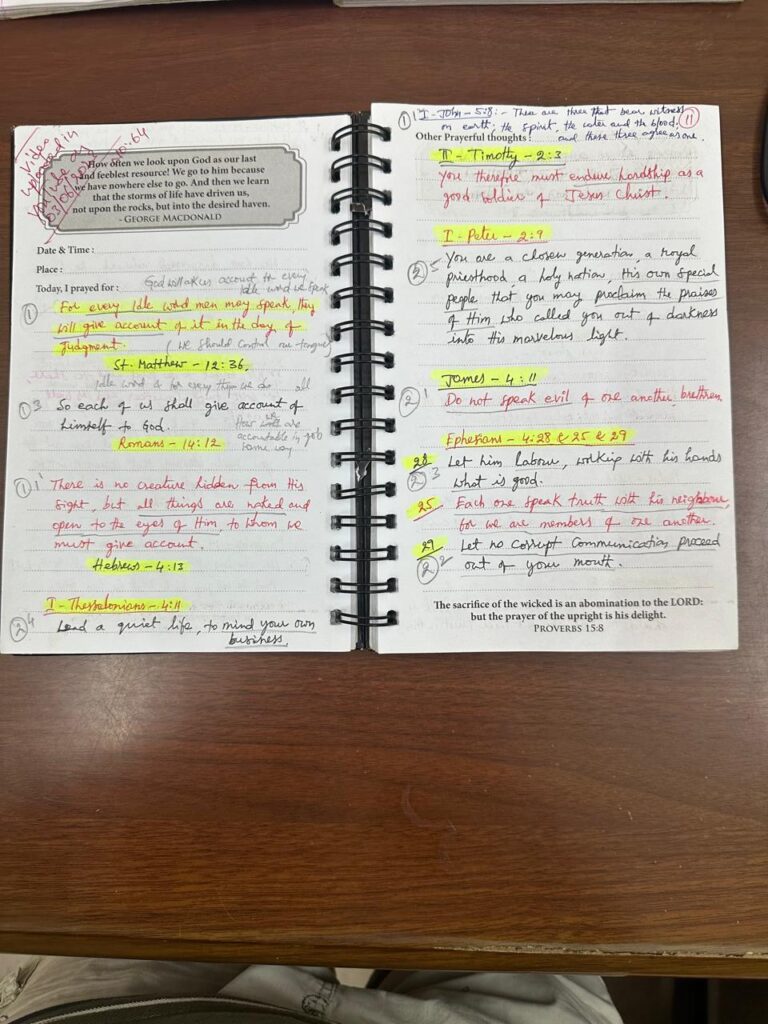 Video
uploaded in
YouTube on
"How often we look upon God as our last
and feeblest resource! We go to him because
we have nowhere else to go. And then we learn
that the storms of life have driven us,
not upon the rocks, but into the desired haven.
- GEORGE MACDONALD
Date & Time :
Place :
God takes account for every
Today, I prayed for : Idle word we speak
① For every Idle word men may speak, they
will give account of it in the day of
Judgment. (we should control our tongue)
St. Matthew - 12:36.
Idle word & for every thing we do all
① 3 So each of us shall give account of
himself to God. How we are
accountable in job
Romans - 14:12 same way
① 1 There is no creature hidden from His
sight, but all things are naked and
open to the eyes of Him, to whom we
must give account.
Hebrews - 4:13
I - Thessalonians - 4:11
② 4 Lead a quiet life, to mind your own
business.
① 1 I - John - 5:8 :- There are three that bear witness
on earth; the spirit, the water and the blood; ⑪
Other Prayerful thoughts : and these three agree as one.
II - Timothy - 2:3
You therefore must endure hardship as a
good soldier of Jesus Christ.
I - Peter - 2:9
② 5 You are a chosen generation, a royal
priesthood, a holy nation, His own special
people that you may proclaim the praises
of Him who called you out of darkness
into His marvelous light.
James - 4:11
② 1 Do not speak evil of one another, brethren
Ephesians - 4:28 & 25 & 29
28 Let him labour, working with his hands
② 3 what is good.
25 Each one speak truth with his neighbour,
for we are members of one another.
29 Let no corrupt communication proceed
② 2 out of your mouth.
The sacrifice of the wicked is an abomination to the LORD:
but the prayer of the upright is his delight.
PROVERBS 15:8